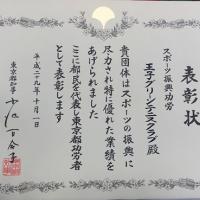 表彰状
スポーツ振興功労
王子グリーンテニスクラブ殿
貴団体はスポーツの振興に
尽力され特に優れた業績を
あげられました
ここに都民を代表し東京都功労者
として表彰します
平成二十九年十月一日
東京都知事 小池百合子